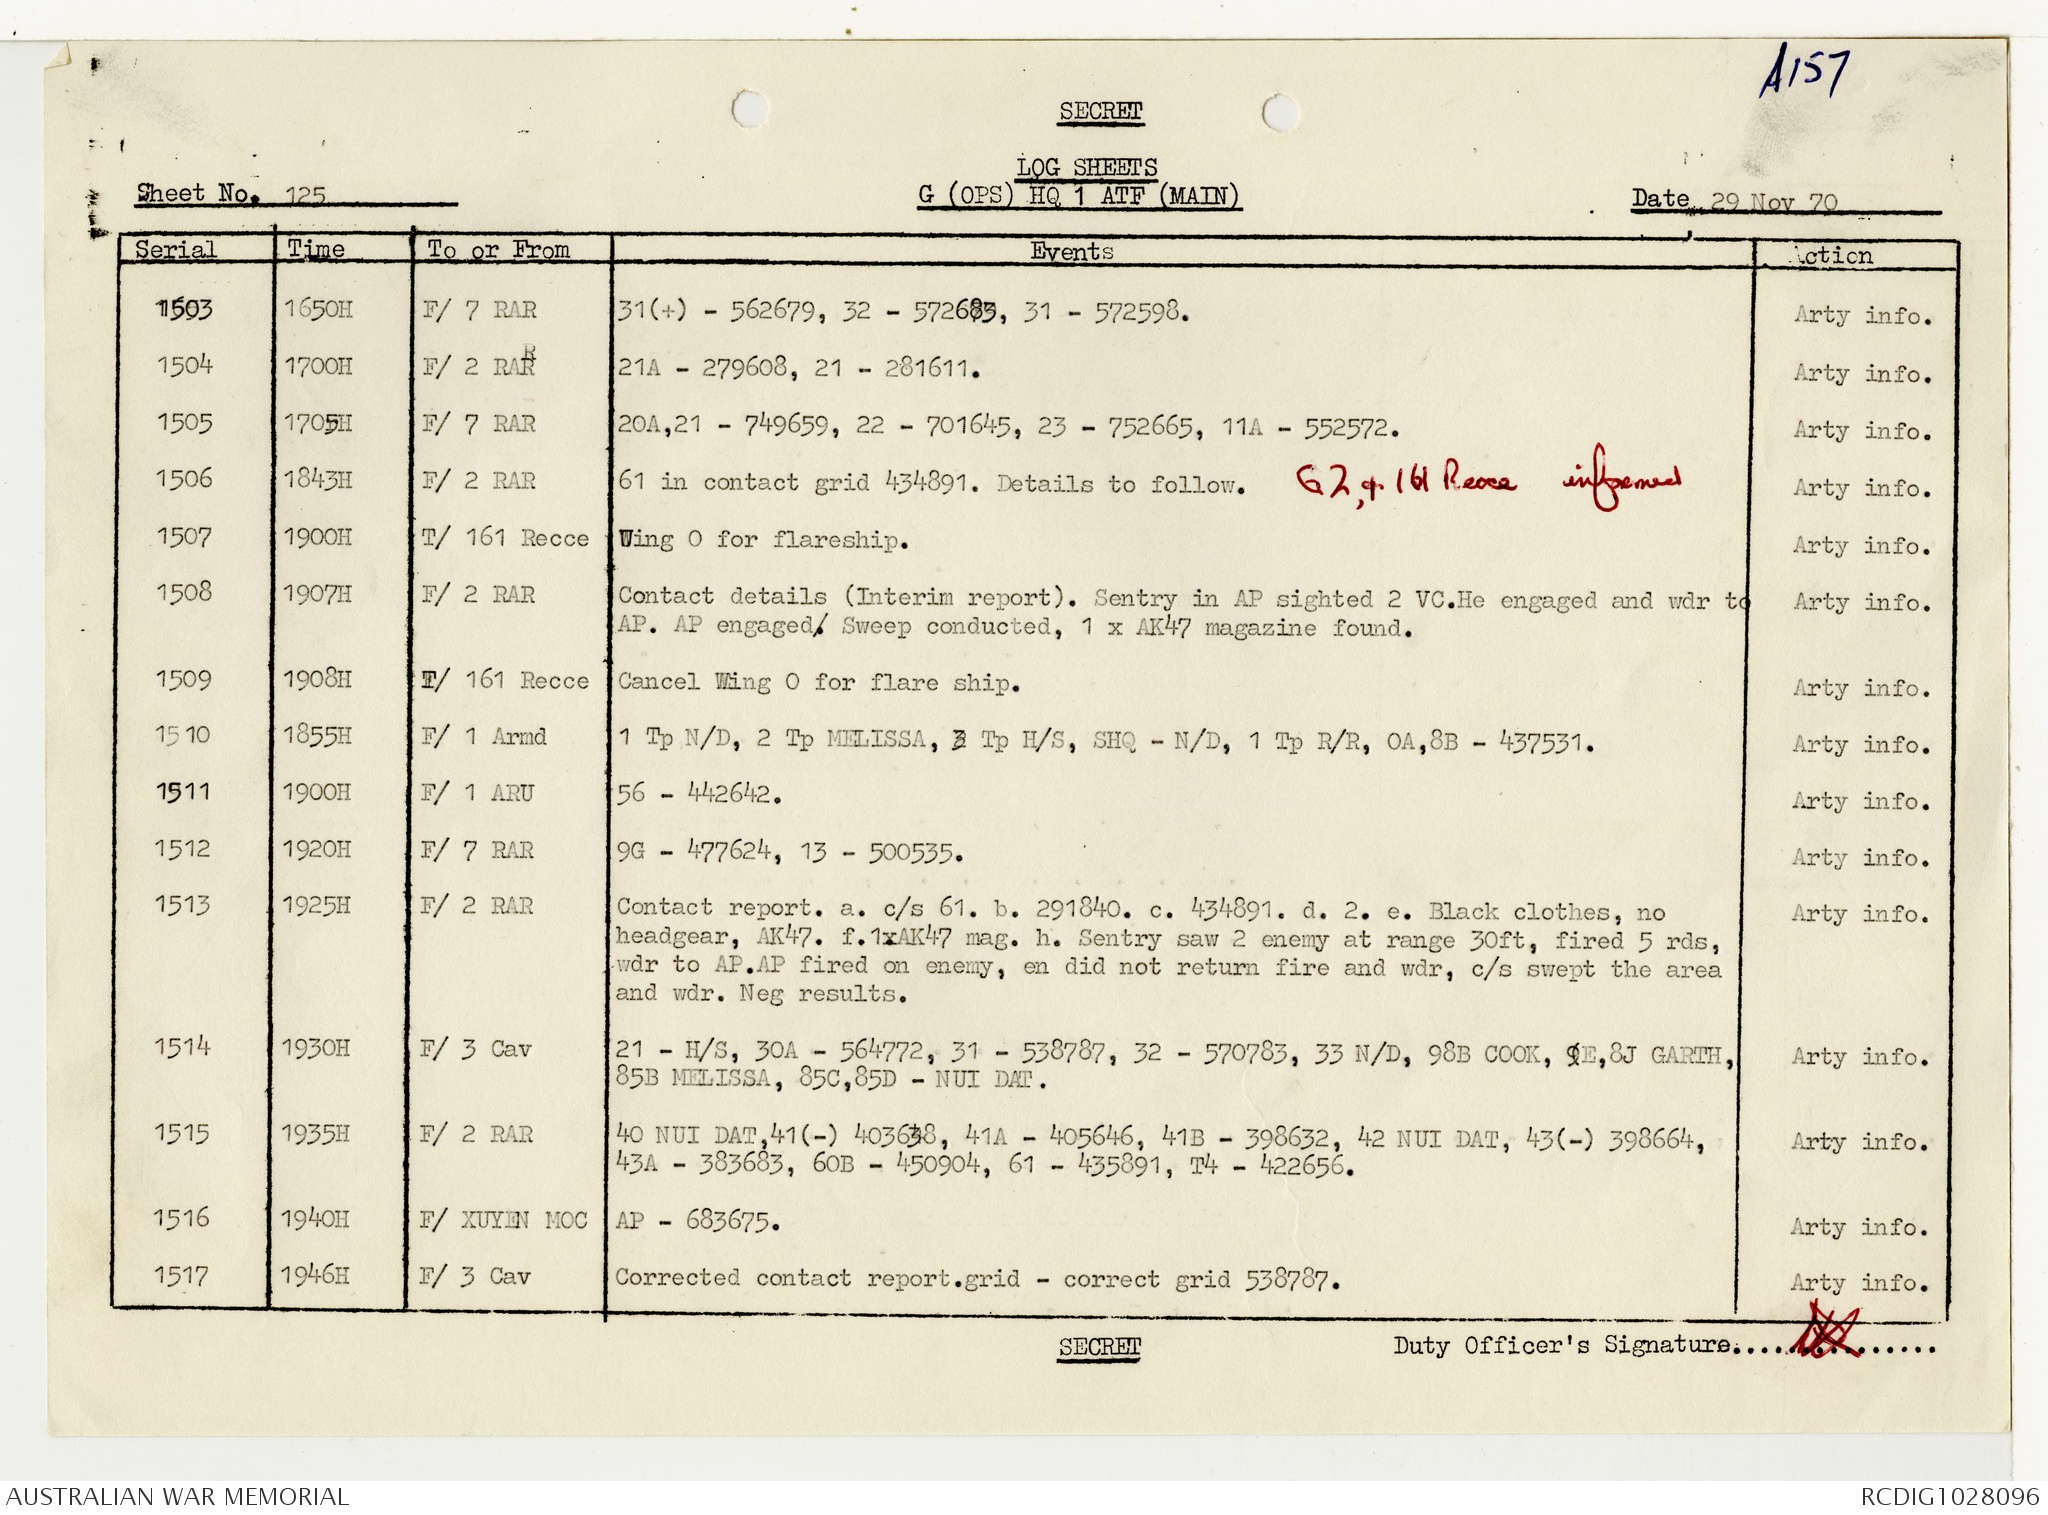 A157
SECRET
LOG SHEETS
Sheet No. 125
G (OPS) HQ 1 ATF (MAIN)
Date 29 Nov 70
Serial Time To or From Events Action
1503 1650H F/ 7 RAR 31(+) - 562679, 32 - 572683, 31 - 572598. Arty info.
1504 1700H F/ 2 RAR 21A - 279608, 21 - 281611. Arty info.
1505 1705H F/ 7 RAR 20A,21 - 749659, 22 - 701645, 23 - 752665, 11A - 552572. Arty info.
1506 1843H F/ 2 RAR 61 in contact grid 434891. Details to follow. G2, & 161 Recce informed Arty info.
1507 1900H T/ 161 Recce Wing O for flareship. Arty info.
1508 1907H F/ 2 RAR Contact details (Interim report). Sentry in AP sighted 2 VC.He engaged and wdr to Arty info.
AP. AP engaged. Sweep conducted, 1 x AK47 magazine found.
1509 1908H T/ 161 Recce Cancel Wing O for flare ship. Arty info.
1510 1855H F/ 1 Armd 1 Tp N/D, 2 Tp MELISSA, 3 Tp H/S, SHQ - N/D, 1 Tp R/R, OA,8B - 437531. Arty info.
1511 1900H F/ 1 ARU 56 - 442642. Arty info.
1512 1920H F/ 7 RAR 9G - 477624, 13 - 500535. Arty info.
1513 1925H F/ 2 RAR Contact report. a. c/s 61. b. 291840. c. 434891. d. 2. e. Black clothes, no Arty info.
headgear, AK47. f.1xAK47 mag. h. Sentry saw 2 enemy at range 30ft, fired 5 rds,
wdr to AP.AP fired on enemy, en did not return fire and wdr, c/s swept the area
and wdr. Neg results.
1514 1930H F/ 3 Cav 21 - H/S, 30A - 564772, 31 - 538787, 32 - 570783, 33 N/D, 98B COOK, 9E,8J GARTH, Arty info.
85B MELISSA, 85C,85D - NUI DAT.
1515 1935H F/ 2 RAR 40 NUI DAT,41(-) 403638, 41A - 405646, 41B - 398632, 42 NUI DAT, 43(-) 398664, Arty info.
43A - 383683, 60B - 450904, 61 - 435891, T4 - 422656.
1516 1940H F/ XUYEN MOC AP - 683675. Arty info.
1517 1946H F/ 3 Cav Corrected contact report.grid - correct grid 538787. Arty info.
SECRET
Duty Officer's Signature................
AUSTRALIAN WAR MEMORIAL
RCDIG1028096